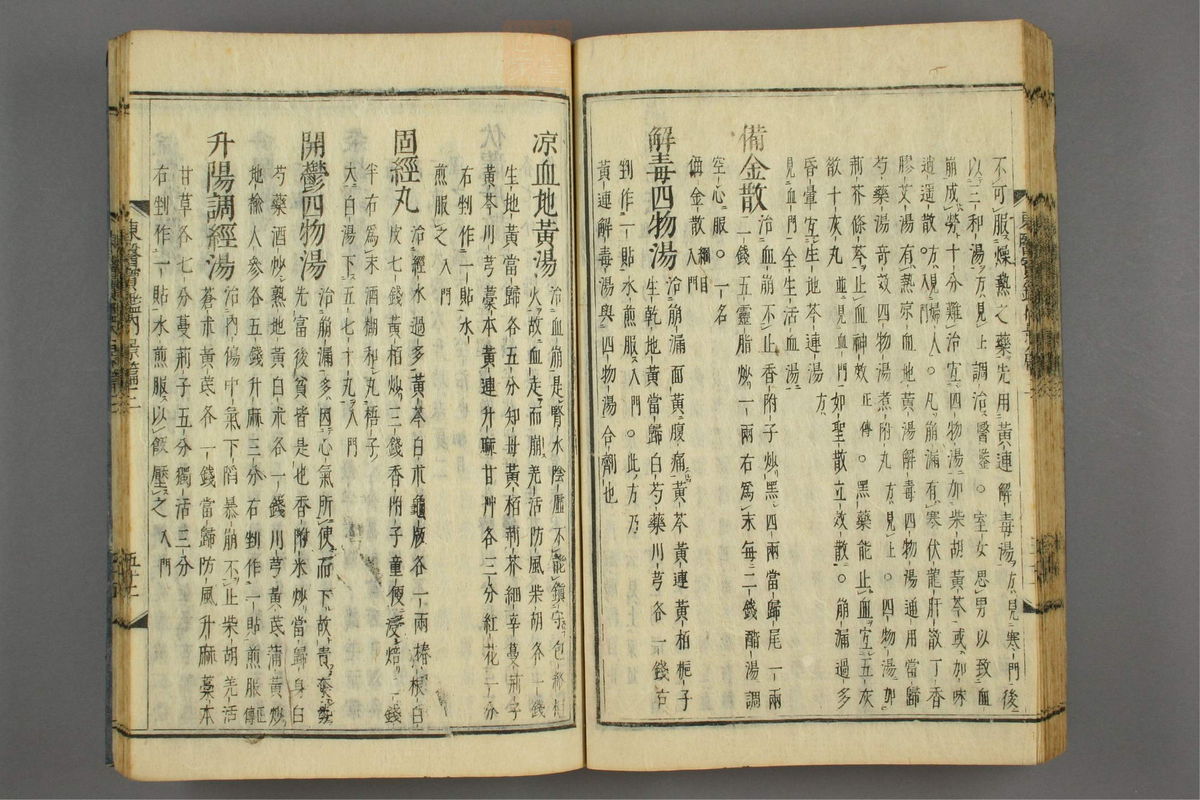 不可服燥熱之藥先用黃連解毒湯方見寒門後
以三和湯方見上調治醫鑒○室女思男以致血
崩成勞十分難治宜四物湯加柴胡黃芩或加味
逍遙散方見婦人入門○凡崩漏有寒伏龍肝散丁香
膠艾湯有熱凉血地黃湯解毒四物湯通用當歸
芍藥湯奇效四物湯煮附丸方見上○四物湯加
荊芥條芩止血神效正傳○黑藥能止血宜五灰
散十灰丸並見血門如聖散立效散○崩漏過多
昏暈宜生地芩連湯方
見血門全生活血湯
備金散治血崩不止香附子炒黑四兩當歸尾一兩
二錢五靈脂炒一兩右爲末每二錢醋湯調
空心服○一名
備金散綱目入門
解毒四物湯治崩漏面黃腹痛黃芩黃連黃栢梔子
生乾地黃當歸白芍藥川芎各一錢右
剉作一貼水煎服入門○此方乃
黃連解毒湯與四物湯合劑也
凉血地黃湯治血崩是腎水陰虛不能鎭守包絡相
火故血走而崩羌活防風柴胡各一錢
生地黃當歸各五分知母黃栢荊芥細辛蔓荊子
黃芩川芎藁本黃連升麻甘艸各三分紅花一分
右剉作一貼水
煎服之入門
固經丸治經水過多黃芩白朮龜版各一兩椿根白
皮七錢黃栢炒三錢香附子童便浸焙二錢
半右爲末酒糊和丸梧子
大白湯下五七十丸入門
開鬱四物湯治崩漏多因心氣所使而下故貴奪勢
先富後貧皆是也香附米炒當歸身白
芍藥酒炒熟地黃白朮各一錢川芎黃茋蒲黃炒
地楡人參各五錢升麻三分右剉作一貼煎服正傳
升陽調經湯治內傷中氣下陷暴崩不止柴胡羌活
蒼朮黃茋各一錢當歸防風升麻藁本
甘草各七分蔓荊子五分獨活三分
右剉作一貼水煎服以飯壓之入門
東醫寶鑑內景篇三
五十二